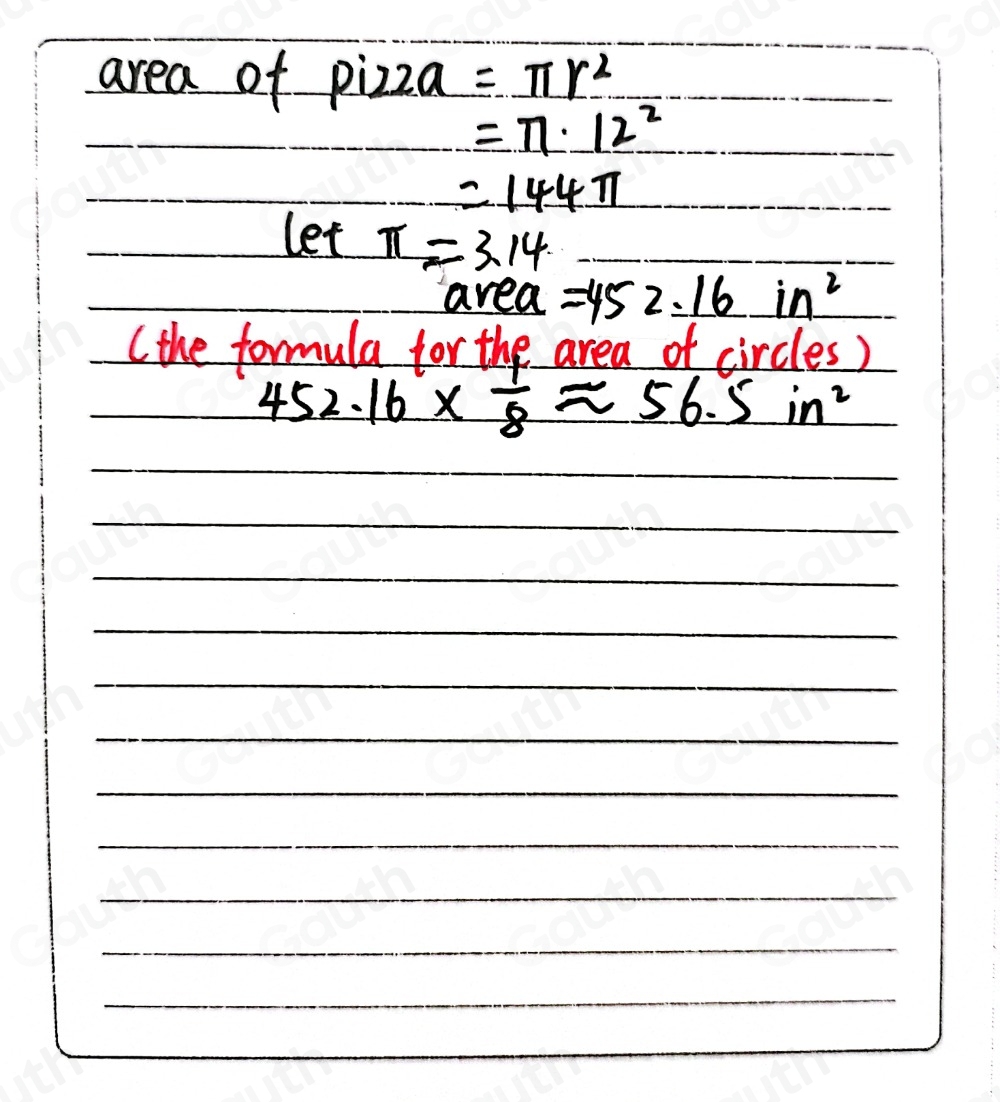 area of pizza = πr²
= π · 12²
= 144π
let π = 3.14
area = 452.16 in²
(the formula for the area of circles)
452.16 × 1/8 ≈ 56.5 in²
Gauth